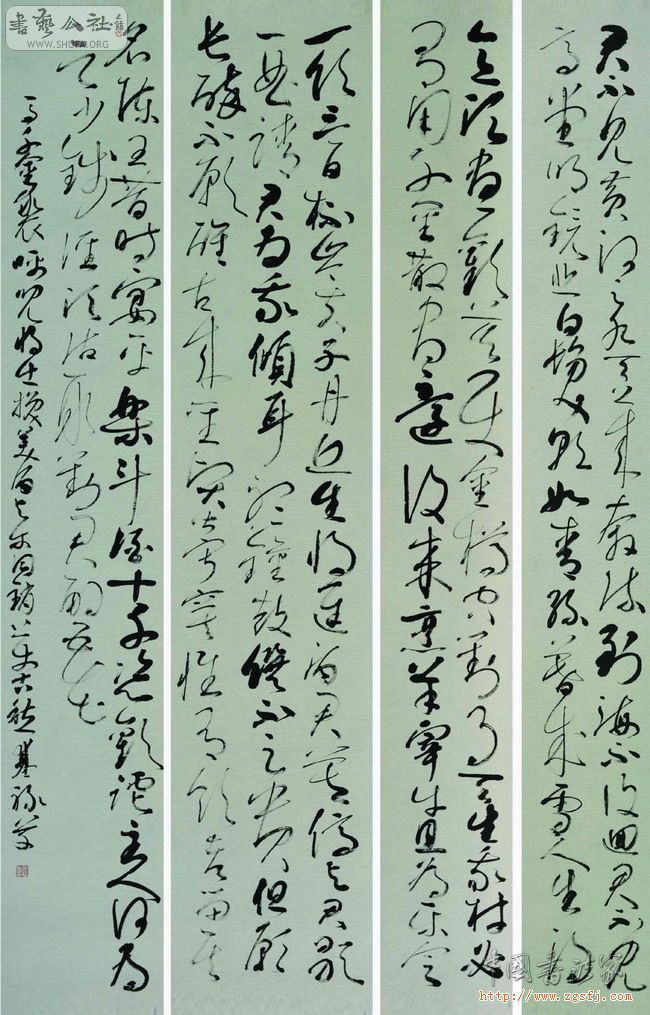 書藝公社
WWW.SHUFA.ORG
君不見黃河之水天上來奔流到海不復迴君不見
高堂明鏡悲白髮朝如青絲暮成雪人生得
意須盡歡莫使金樽空對月天生我材必
有用千金散盡還復來烹羊宰牛且為樂會
一飲三百杯岑夫子丹丘生將進酒君莫停與君歌
一曲請君為我傾耳聽鐘鼓饌玉不足貴但願
長醉不願醒古來聖賢皆寂寞惟有飲者留其
名陳王昔時宴平樂斗酒十千恣歡謔主人何為
言少錢徑須沽取對君酌五花
馬千金裘呼兒將出換美酒與爾同銷萬古愁
中國書法家
http://www.zgsfj.com